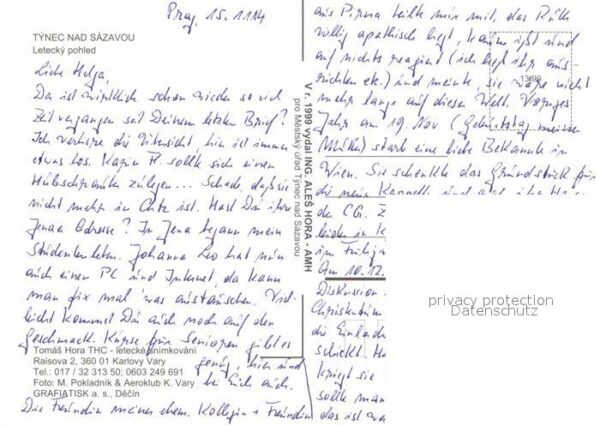 Prag, 15.11.14
TÝNEC NAD SÁZAVOU
Letecký pohled
Liebe Helga,
Da ist wirklich schon wieder so viel
Zeit vergangen seit Deinem letzten Brief?
Ich verliere die Übersicht, hier ist immer
etwas los. Karin H. sollte sich einen
Hubschrauber zulegen... Schade, daß sie
nicht mehr in Chtz ist. Hast Du ihre
Jenaer Adresse? In Jena begann mein
Studentenleben. Johanna Leo hat nun
auch einen PC und Internet, da kann
man fix mal was austauschen. Viel-
leicht kommst Du auch noch auf den
Geschmack. Kurse für Senioren gibt es
genug, hier und
bei Euch auch.
Die Freundin meiner ehem. Kollegin + Freundin
Tomáš Hora THC - letecké snímkování
Raisova 2, 360 01 Karlovy Vary
Tel.: 017 / 32 313 50; 0603 249 691
Foto: M. Pokladník & Aeroklub K. Vary
GRAFIATISK a. s., Děčín
V r. 1999 vydal ING. ALEŠ HORA - AMH
pro Městský úřad Týnec nad Sázavou
aus Pirna teilte mir mit, das Ruth
völlig apathisch liegt, kaum ißt und
auf nichts reagiert (ich ließ ihr aus-
richten etc.) und meinte, sie wäre nicht
mehr lange auf dieser Welt. Voriges
Jahr am 19. Nov. (Geburtstag meiner
Mutter) starb eine liebe Bekannte in
Wien. Sie schenkte das Grundstück für
13/99
die
de CG. Z
leider in K
im Frühja
Am 10.12.
Diskussion
Christentum
die Einlad
schickt. Ha
kriegt sie
sollte man
das ist wa
privacy protection
Datenschutz